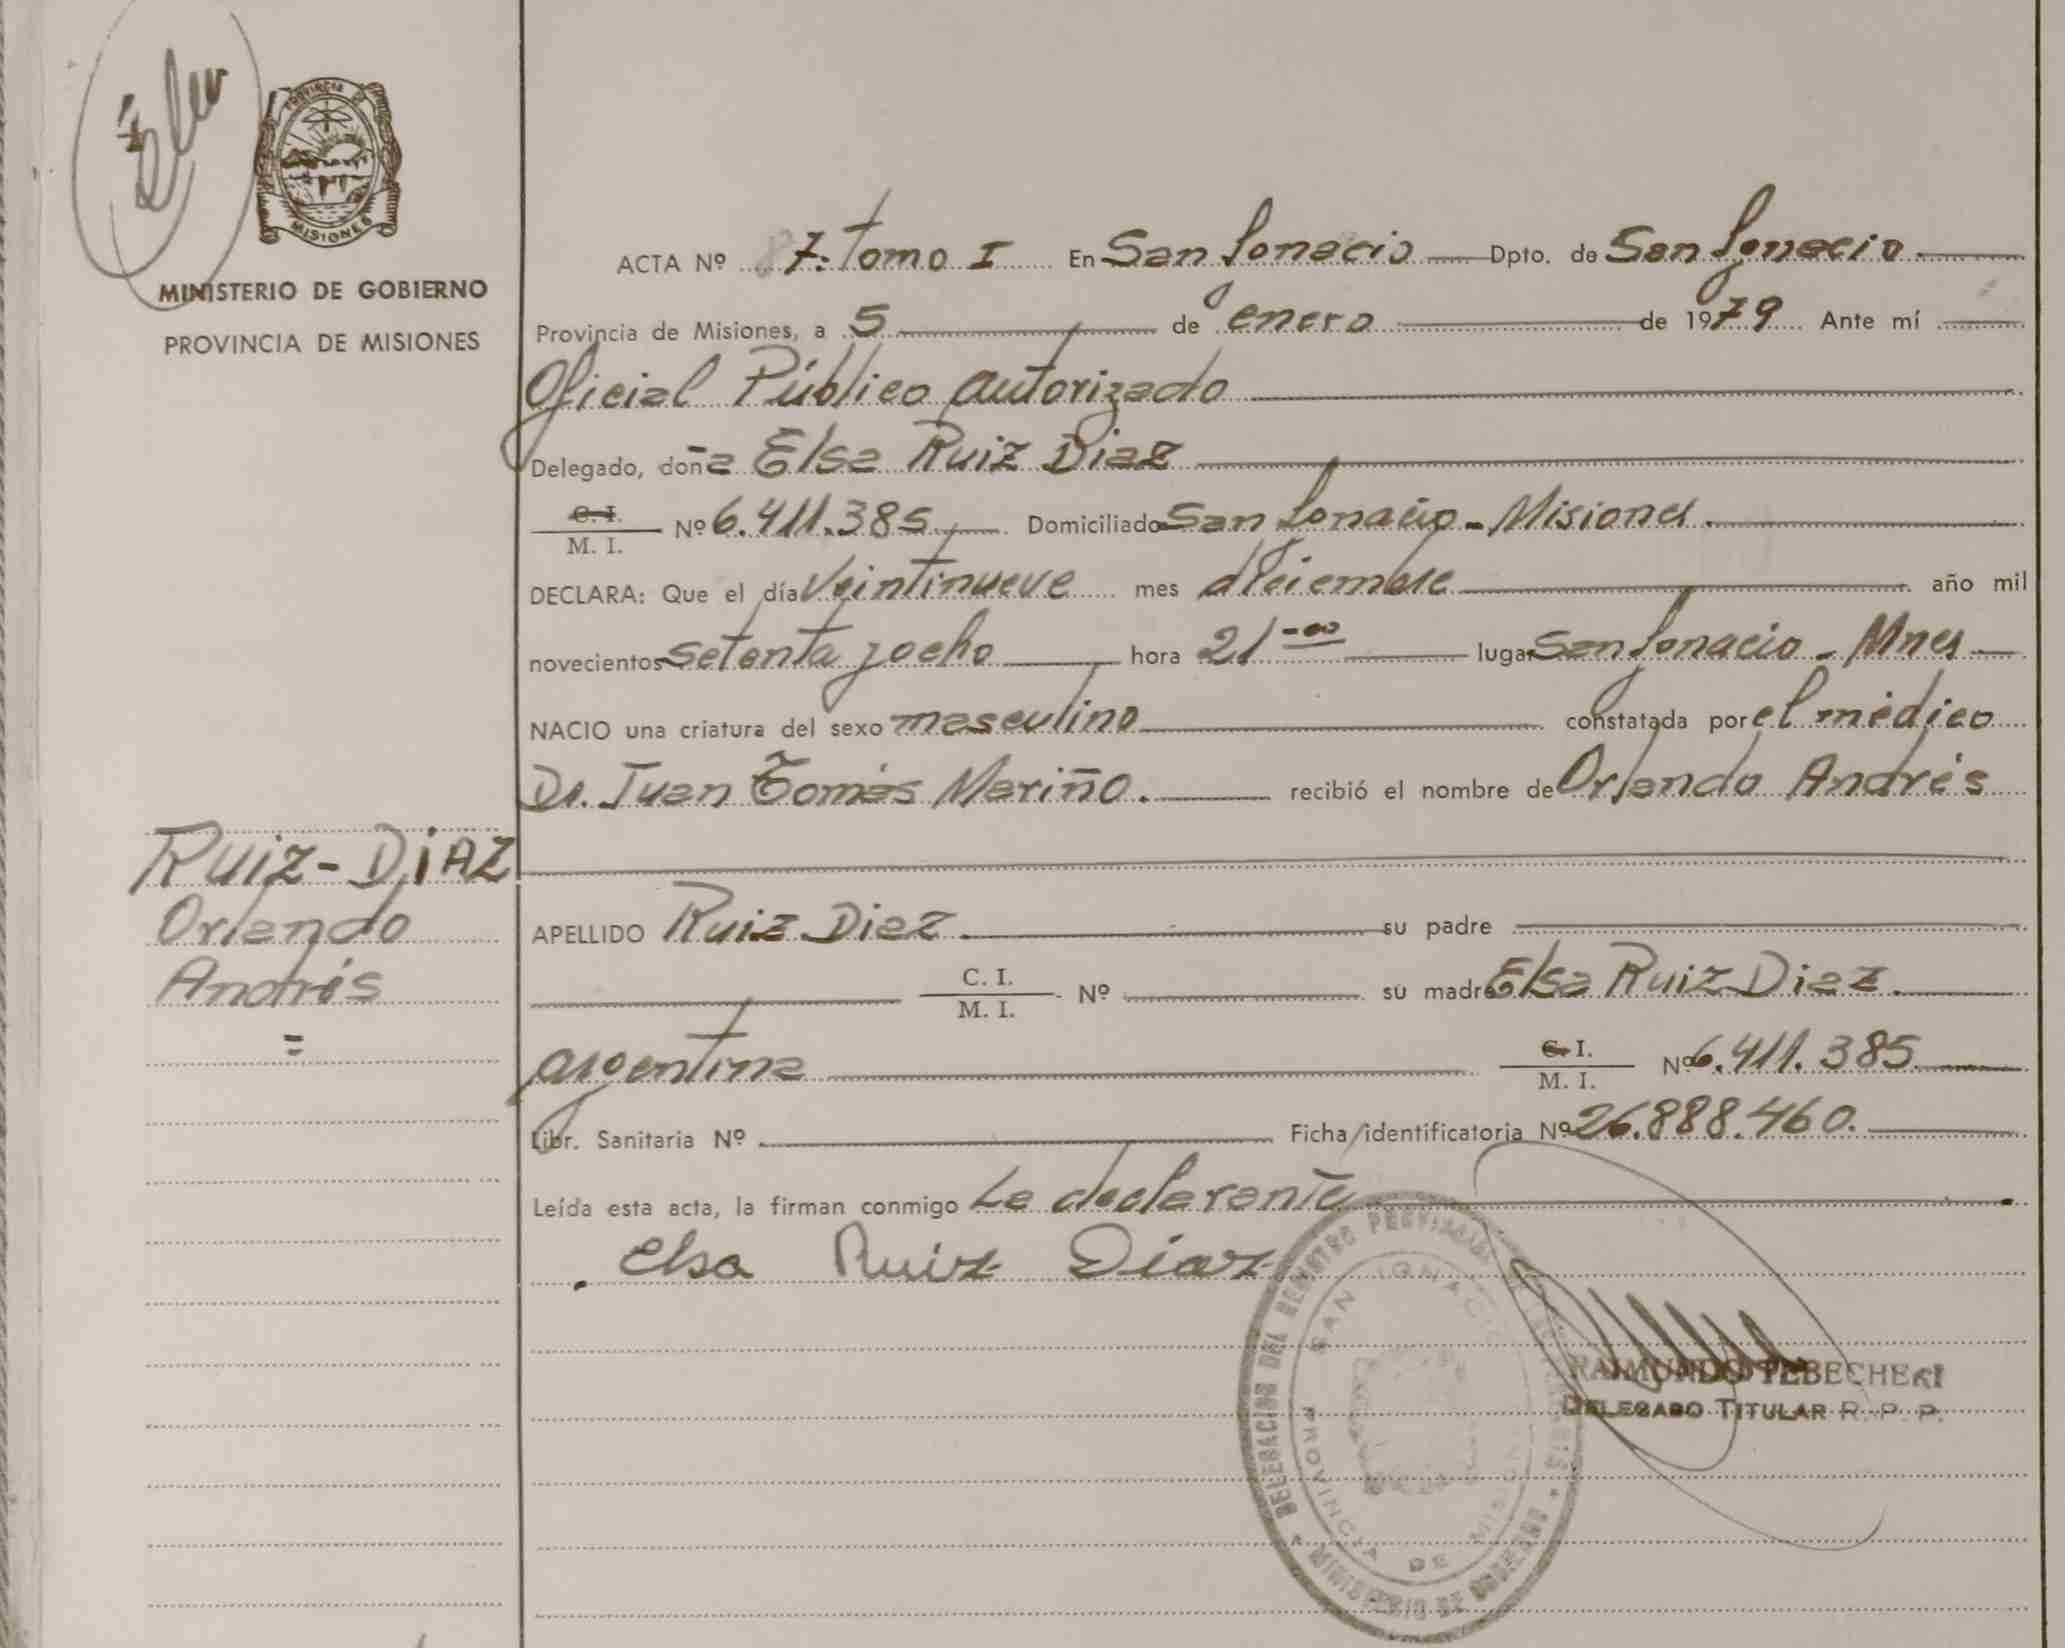 PROVINCIA DE
MISIONES
MINISTERIO DE GOBIERNO
PROVINCIA DE MISIONES
ACTA Nº 7. Tomo I En San Ignacio Dpto. de San Ignacio
Provincia de Misiones, a 5 de enero de 1979 Ante mí
Oficial Público autorizado
Delegado, doña Elsa Ruiz Diaz
C. I. M. I. Nº 6.411.385 Domiciliado San Ignacio - Misiones.
DECLARA: Que el día veintinueve mes diciembre año mil
novecientos setenta y ocho hora 21-00 lugar San Ignacio - Mnes
NACIO una criatura del sexo masculino constatada por el médico
Dr. Juan Tomás Mariño. recibió el nombre de Orlando Andrés
RUIZ-DIAZ
Orlando
Andrés
=
APELLIDO Ruiz Diaz. su padre
C. I. M. I. Nº su madre Elsa Ruiz Diaz.
argentina C. I. M. I. Nº 6.411.385
Libr. Sanitaria Nº Ficha identificatoria Nº 26.888.460.
Leída esta acta, la firman conmigo La declarante
Elsa Ruiz Diaz
DELEGACION DEL REGISTRO PROVINCIAL DE
SAN IGNACIO
PROVINCIA DE MISIONES
MINISTERIO DE GOBIERNO
RAIMUNDO TEBECHERI
DELEGADO TITULAR R. P. P.